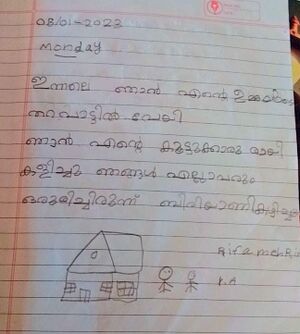 08/01-2023
monday
ഇന്നലെ ഞാൻ എന്റെ ഉമ്മയുടെ
തറവാട്ടിൽ പോയി
ഞാൻ എന്റെ കൂട്ടുക്കാരുമായി
കളിച്ചു ഞങ്ങൾ എല്ലാവരും
ഒരുമിച്ചിരുന്ന് ബിരിയാണി കഴിച്ചു